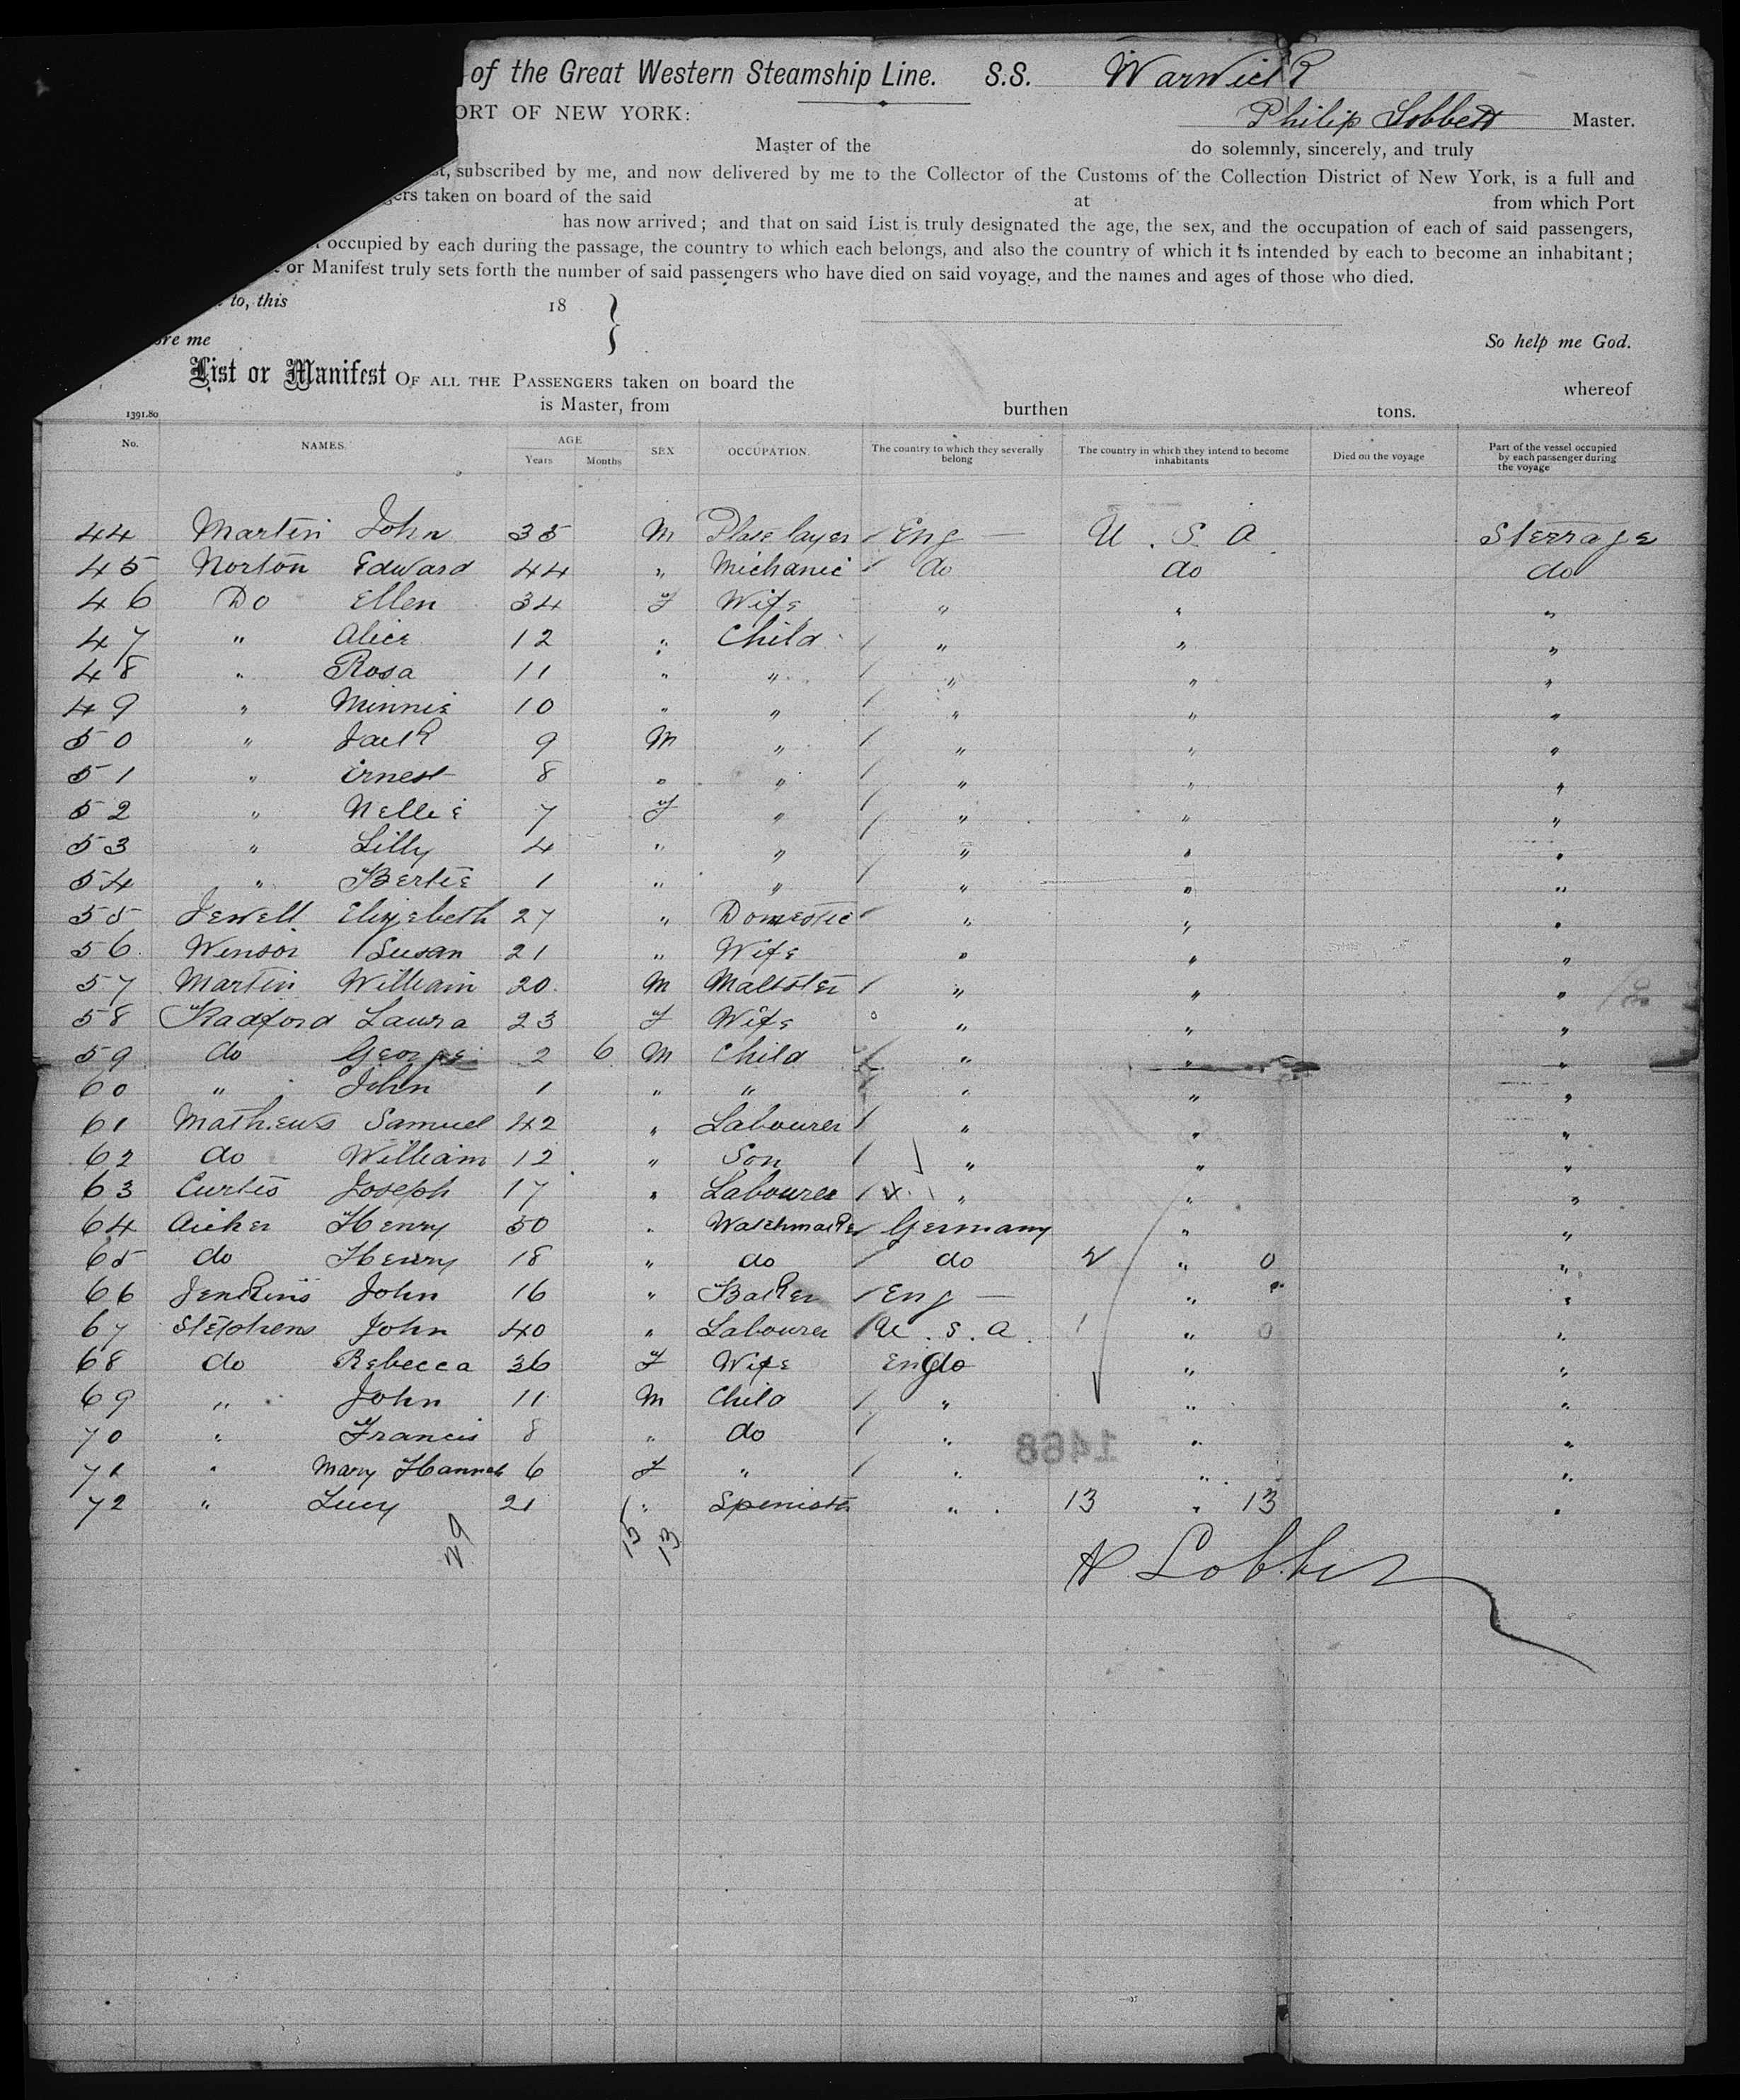 of the Great Western Steamship Line. S.S. Warwick
ORT OF NEW YORK: Philip Lobbett Master.
Master of the do solemnly, sincerely, and truly
st, subscribed by me, and now delivered by me to the Collector of the Customs of the Collection District of New York, is a full and
gers taken on board of the said at from which Port
has now arrived; and that on said List is truly designated the age, the sex, and the occupation of each of said passengers,
occupied by each during the passage, the country to which each belongs, and also the country of which it is intended by each to become an inhabitant;
or Manifest truly sets forth the number of said passengers who have died on said voyage, and the names and ages of those who died.
to, this 18 }
ore me So help me God.
List or Manifest OF ALL THE PASSENGERS taken on board the whereof
is Master, from burthen tons.
1391.80
No. NAMES. AGE Years Months SEX OCCUPATION. The country to which they severally belong The country in which they intend to become inhabitants Died on the voyage Part of the vessel occupied by each passenger during the voyage
44 Martin John 35 M Plate layer / Eng — U. S. A. Sterrage
45 Norton Edward 44 " Michanic / do do do
46 Do Ellen 34 F Wife " " "
47 " Alice 12 " Child / " " "
48 " Rosa 11 " " / " " "
49 " Minnie 10 " " / " " "
50 " Jack 9 M " / " " "
51 " Ernest 8 " " / " " "
52 " Nellie 7 F " / " " "
53 " Lilly 4 " " / " " "
54 " Bertie 1 " " / " " "
55 Jewell Elizebeth 27 " Domestic / " " "
56 Winsor Susan 21 " Wife " " "
57 Martin William 20 M Maltster / " " "
58 Radford Laura 23 F Wife " " "
59 do George 2 6 M Child / " " "
60 " John 1 " " / " " "
61 Mathews Samuel 42 " Labourer / " " "
62 do William 12 " Son / " " "
63 Curtis Joseph 17 " Labourer / " " "
64 Aicher Henry 50 " Watchmaker / Germany " "
65 do Henry 18 " do / do 2 " 0 "
66 Jenkins John 16 " Baker / Eng — " "
67 Stephens John 40 " Labourer / U. S. A. 1 " 0 "
68 do Rebecca 36 F Wife Eng do " "
69 " John 11 M Child / " " "
70 " Francis 8 " do / " " "
71 " Mary Hannah 6 F " / " " "
72 " Lucy 21 " Spenister " 13 " 13 "
29 15 13
1468
P Lobbett